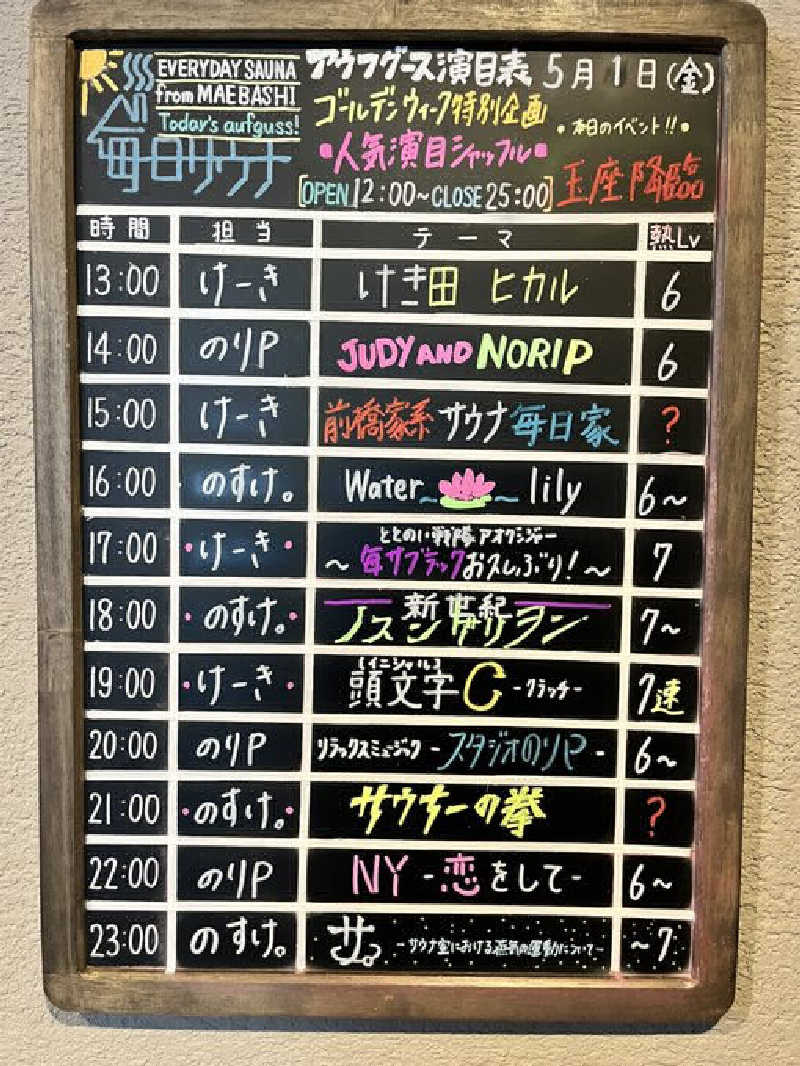 EVERYDAY SAUNA
from MAEBASHI
Today's aufguss!
毎日サウナ
アウフグース演目表 5月1日(金)
ゴールデンウィーク特別企画
・人気演目シャッフル・
・本日のイベント!!・
玉座降臨
OPEN 12:00~CLOSE 25:00
時間 担当 テーマ 熱Lv
13:00 けーき けき田 ヒカル 6
14:00 のりP JUDY AND NORIP 6
15:00 けーき 前橋家系サウナ毎日家 ?
16:00 のすけ。 Water~ ~lily 6~
ととのい戦隊アオグンジャー
17:00 ・けーき・ ~毎サブラックお久しぶり!~ 7
新世紀
18:00 ・のすけ。・ ノスンゲリヲン 7~
[イニシャル]
19:00 ・けーき・ 頭文字C -クラッチ- 7速
20:00 のりP リラックスミュージック-スタジオのりP- 6~
21:00 ・のすけ。・ サウナーの拳 ?
22:00 のりP NY-恋をして- 6~
23:00 のすけ。 サ。-サウナ室における蒸気の運動について- ~7